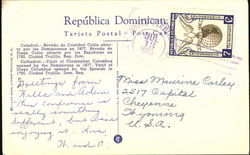 República Dominican
Tarjeta Postal - Post
Catedral.- Bóveda de Cristobal Colón abier-
ta por los Dominicanos en 1877. Bóveda de
Diego Colón abierta por los Españoles en
1795. Ciudad Trujillo, Rep. Dom.
Cathedral.- Vault of Christopher Columbus
opened by the Dominicans in 1877. Vault of
Diego Columbus opened by the Spanish in
1795. Ciudad Trujillo, Dom. Rep.
Greetings from
Hills and Arden
This conference is
really something
different but
enjoying it. Love,
W. and P.
Miss Maurine Carley
2517 Capitol
Cheyenne
Wyoming
U.S.A.